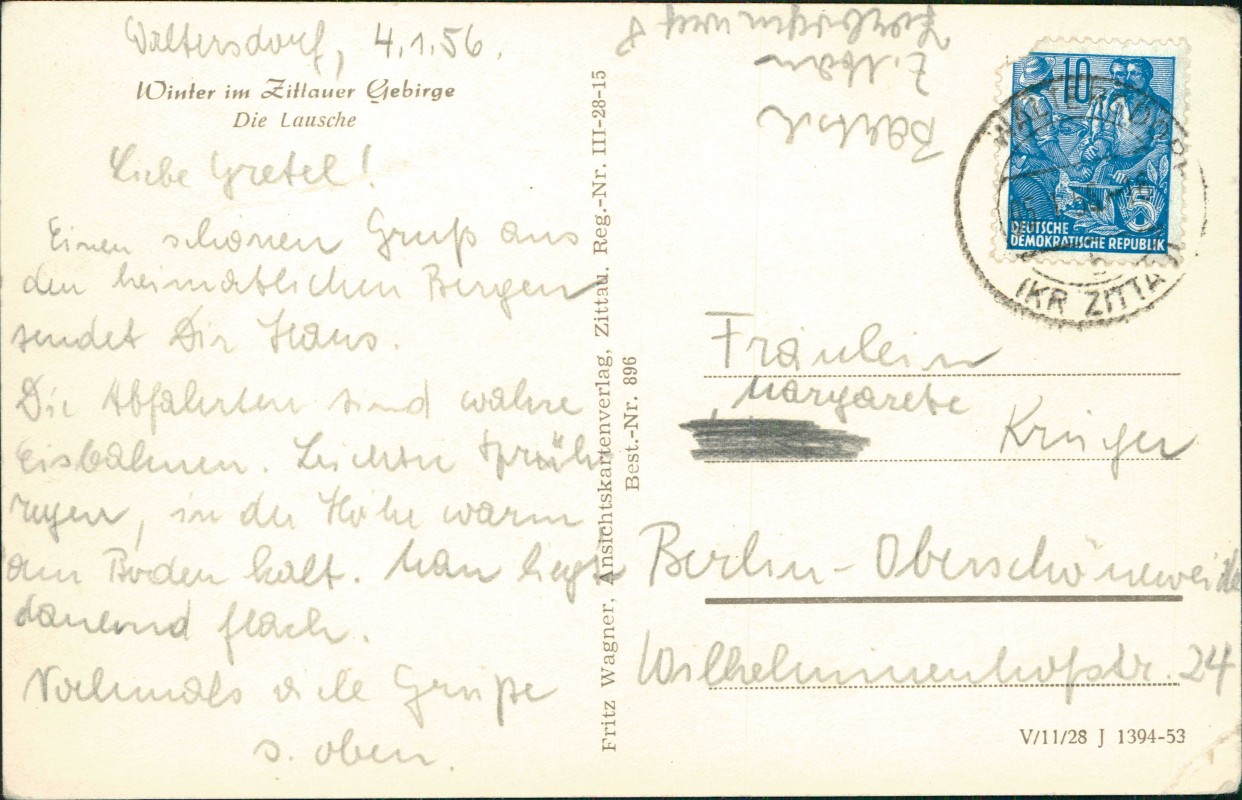 Waltersdorf, 4.1.56.
Winter im Zittauer Gebirge
Die Lausche
Liebe Gretel!
Einen schönen Gruß aus
den heimatlichen Bergen
sendet Dir Hans.
Die Abfahrten sind wahre
Eisbahnen. Leichter Sprüh
regen, in der Höhe warm
am Boden kalt. Man liegt
dauernd flach.
Nochmals viele Grüße
s. oben.
Fritz Wagner, Ansichtskartenverlag, Zittau. Reg.-Nr. III-28-15
Best.-Nr. 896
Zittau
8
10
5
DEUTSCHE
DEMOKRATISCHE REPUBLIK
WALTERSDORF
(KR ZITTAU)
Fräulein
Margarete
Krüger
Berlin-Oberschöneweide
Wilhelminenhofstr. 24
V/11/28 J 1394-53